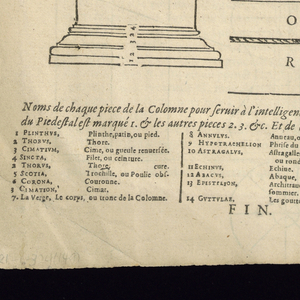 O
R
Noms de chaque piece de la Colomne pour seruir à l'intelligen
du Piedestal est marqué 1. & les autres pieces 2. 3. &c. Et de
1 PLINTHVS, Plinthe, patin, ou pied.
2 THORVS, Thore.
3 CIMATIVM, Cime, ou gueule renuersée.
4 SINCTA, Filet, ou ceinture.
2 THORVS, Thore,
5 SCOTIA, Trochile, ou Poulie obs-
6 CORONA, Couronne.
3 CIMATION, Cimat.
7. La Verge, Le corps, ou tronc de la Colomne.
8 ANNVLVS, Anneau, o
9 HYPOTRACHELION Phrise du
10 ASTRAGALVS, Astragalle
ou rond
11 ECHINVS, Echine,
12 ABACVS, Abaque,
13 EPISTYLION, Architrau
sommier.
14 GVTTVLAE, Les goutt
FIN.